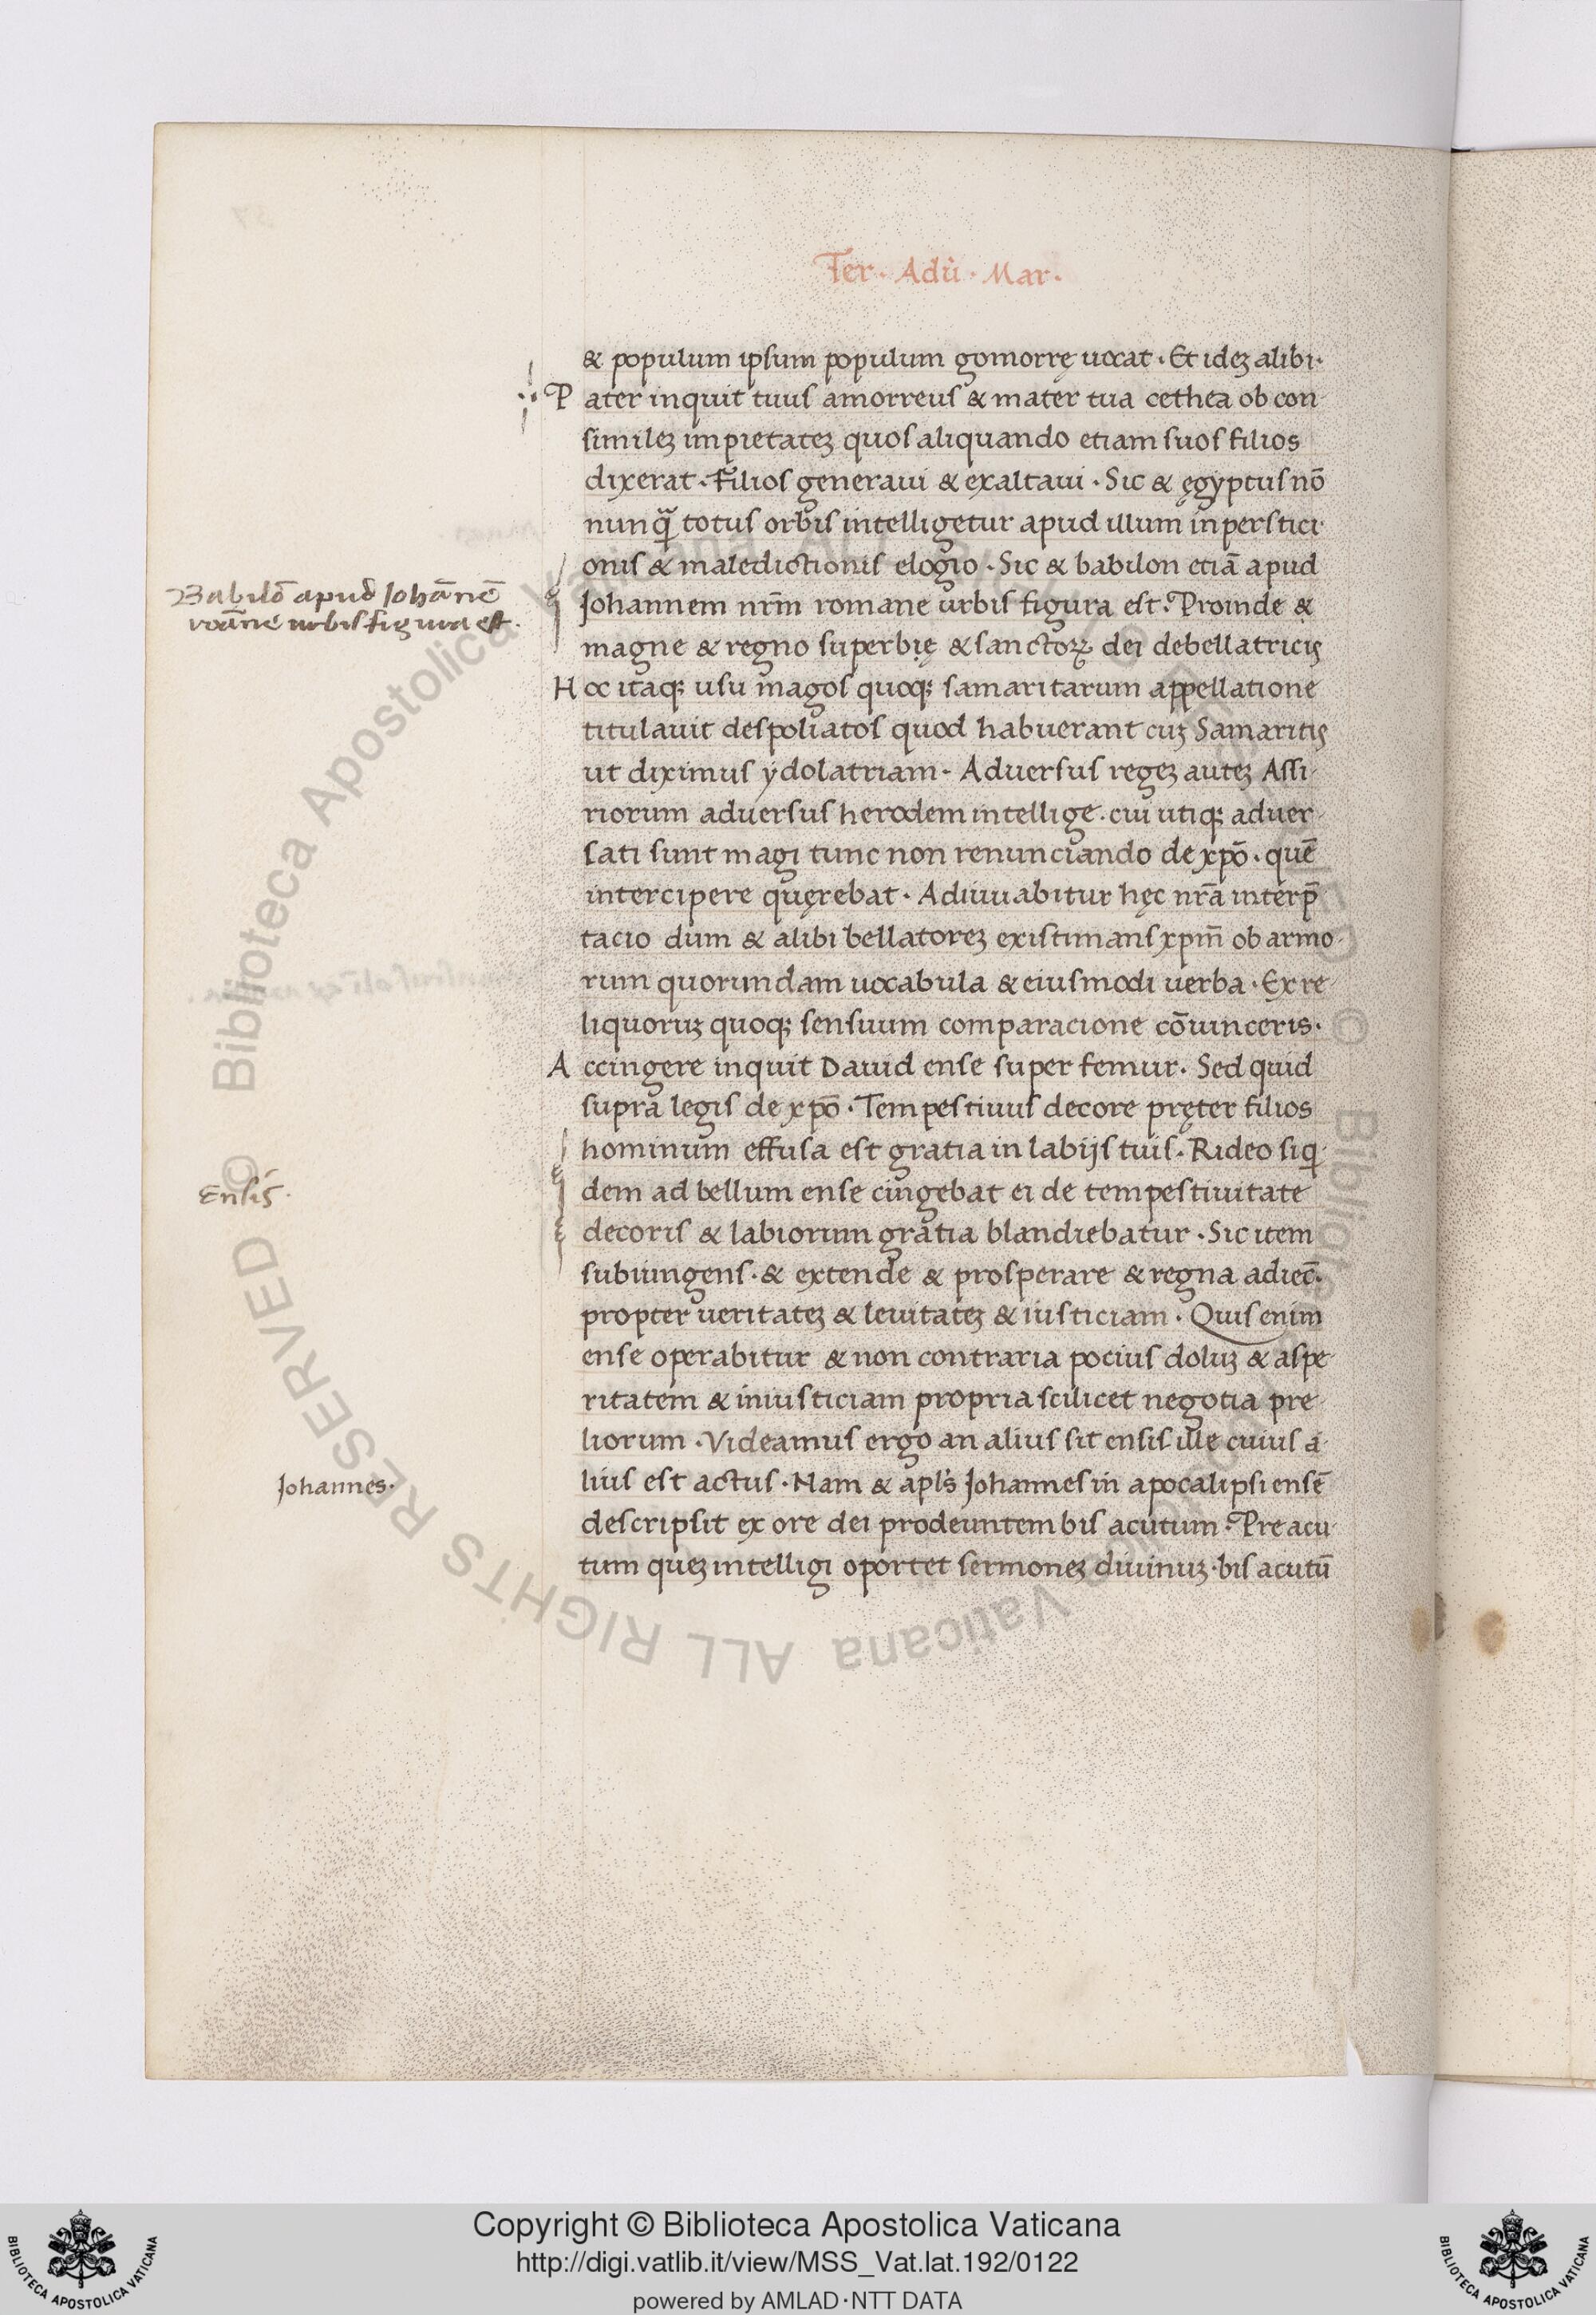 Ter · Adū · Mar ·
& populum ipsum populum gomorrę uocat · Et ideꝫ alibi ·
Pater inquit tuus amorreus & mater tua cethea ob con
simileꝫ impietateꝫ quos aliquando etiam suos filios
dixerat · Filios generaui & exaltaui · Sic & ęgyptus nō
nunꝗ̄ totus orbis intelligetur apud illum inperstici
onis & maledictionis elogio · Sic & babilon etiā apud
Babilō apud Iohānē
roāne urbis figura est ·
Johannem nr̄m romane urbis figura est · Proinde &
magne & regno superbię & sanctoꝝ dei debellatricis
Hoc itaqꝫ usu magos quoqꝫ samaritarum appellatione
titulauit despoliatos quod habuerant cuꝫ Samaritis
ut diximus ydolatriam · Aduersus regeꝫ auteꝫ Assi
riorum aduersus herodem intellige · cui utiqꝫ aduer
sati sunt magi tunc non renunciando de xp̄o · quē
intercipere quęrebat · Adiuuabitur hęc nr̄a interp̄
tacio dum & alibi bellatoreꝫ existimans xpm̄ ob armo
rum quorundam uocabula & eiusmodi uerba · Ex re
liquoruꝫ quoqꝫ sensuum comparacione cōuinceris ·
Accingere inquit Dauid ense super femur · Sed quid
supra legis de xpō · Tempestiuus decore pręter filios
hominum effusa est gratia in labijs tuis · Rideo siq
Ensis ·
dem ad bellum ense cingebat ei de tempestiuitate
decoris & labiorum gratia blandiebatur · Sic item
subiungens · & extende & prosperare & regna adiec̄ ·
propter ueritateꝫ & leuitateꝫ & iusticiam · Quis enim
ense operabitur & non contraria pocius doluꝫ & aspe
ritatem & iniusticiam propria scilicet negotia pre
liorum · Videamus ergo an alius sit ensis ille cuius a
Johannes ·
lius est actus · Nam & apl's Johannes in apocalipsi ensē
descripsit ex ore dei prodeuntem bis acutum · Pre acu
tum queꝫ intelligi oportet sermoneꝫ diuinuꝫ · bis acutū
© Biblioteca Apostolica Vaticana ALL RIGHTS RESERVED
Copyright © Biblioteca Apostolica Vaticana
http://digi.vatlib.it/view/MSS_Vat.lat.192/0122
powered by AMLAD·NTT DATA
BIBLIOTECA APOSTOLICA VATICANA
BIBLIOTECA APOSTOLICA VATICANA